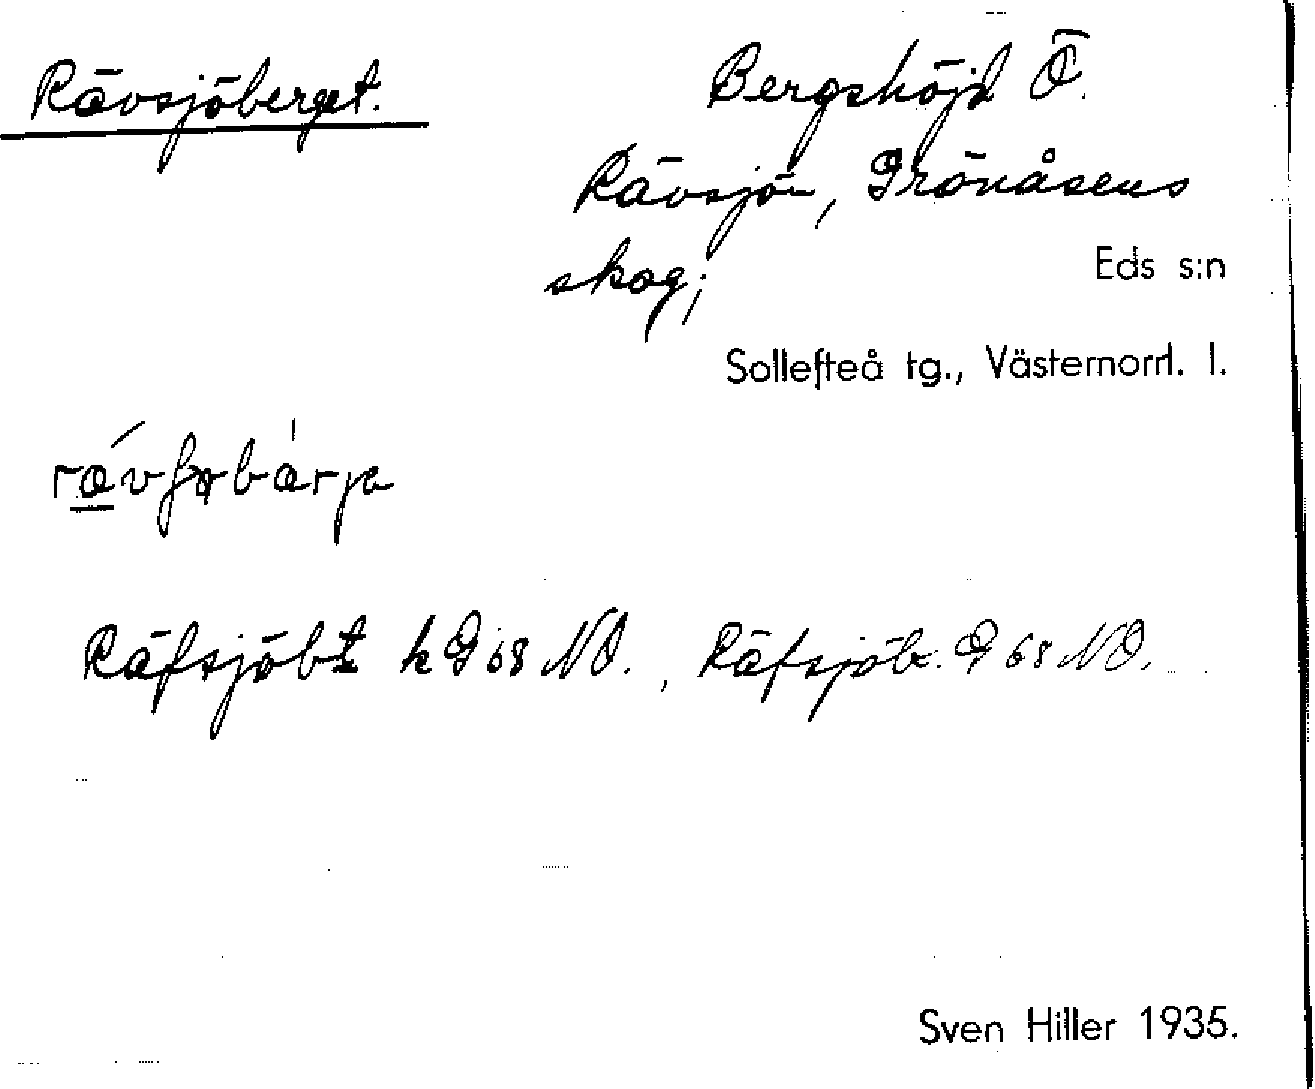 Rävsjöberget.
Bergshöjd Ö.
Rävsjön, Grönåsens
skog;
Eds s:n
Sollefteå tg., Västernorrl. l.
Räfsjöbt k G 68 NO., Räfsjöb. G 68 NO.
Sven Hiller 1935.